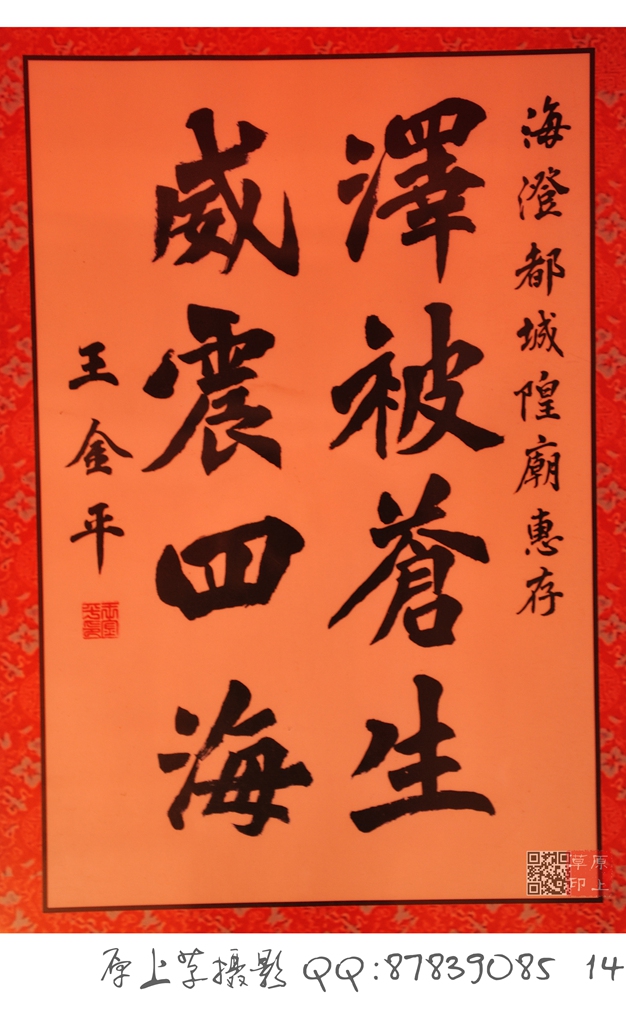 海澄都城隍廟惠存
澤被蒼生
威震四海
王金平
原上草印
原上草摄影 QQ:87839085 14